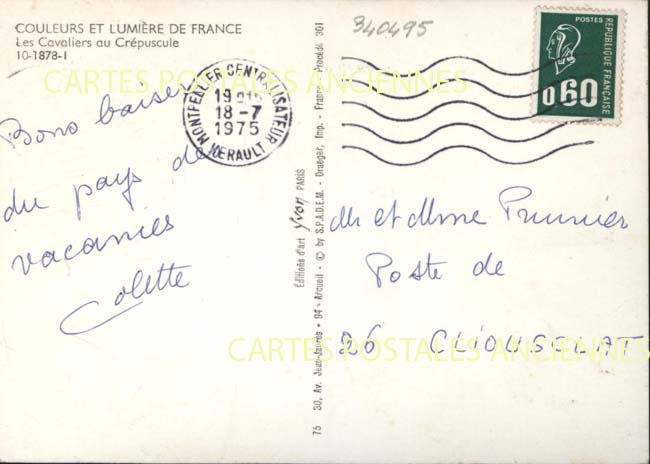 COULEURS ET LUMIÈRE DE FRANCE
Les Cavaliers au Crépuscule
10-1878-I
340495
CARTES POSTALES ANCIENNES
Bons baisers
du pays de
vacances
Colette
MONTPELLIER CENTRALISATEUR
18-7
1975
HERAULT
POSTES
REPUBLIQUE FRANÇAISE
0,60
Editions d'art Yvon PARIS
75 30, Av. Jean-Jaurès • 94 - Arcueil - © by S.P.A.D.E.M. - Draeger, Imp. - France - Procédé 301
Mr et Mme Prunier
Poste de
26 CLIOUSCLAT
CARTES POSTALES ANCIENNES